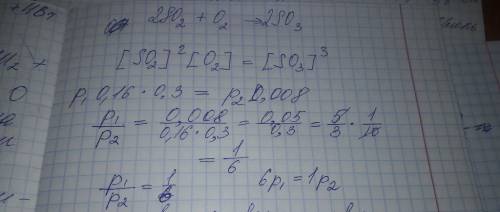 2SO₂ + O₂ → 2SO₃
[SO₂]²[O₂] = [SO₃]³
O
p₁ 0,16 · 0,3 = p₂ 0,008
p₁/p₂ = 0,008/(0,16 · 0,3) = 0,05/0,3 = 5/3 · 1/10
= 1/6
p₁/p₂ = 1/6   6p₁ = 1p₂